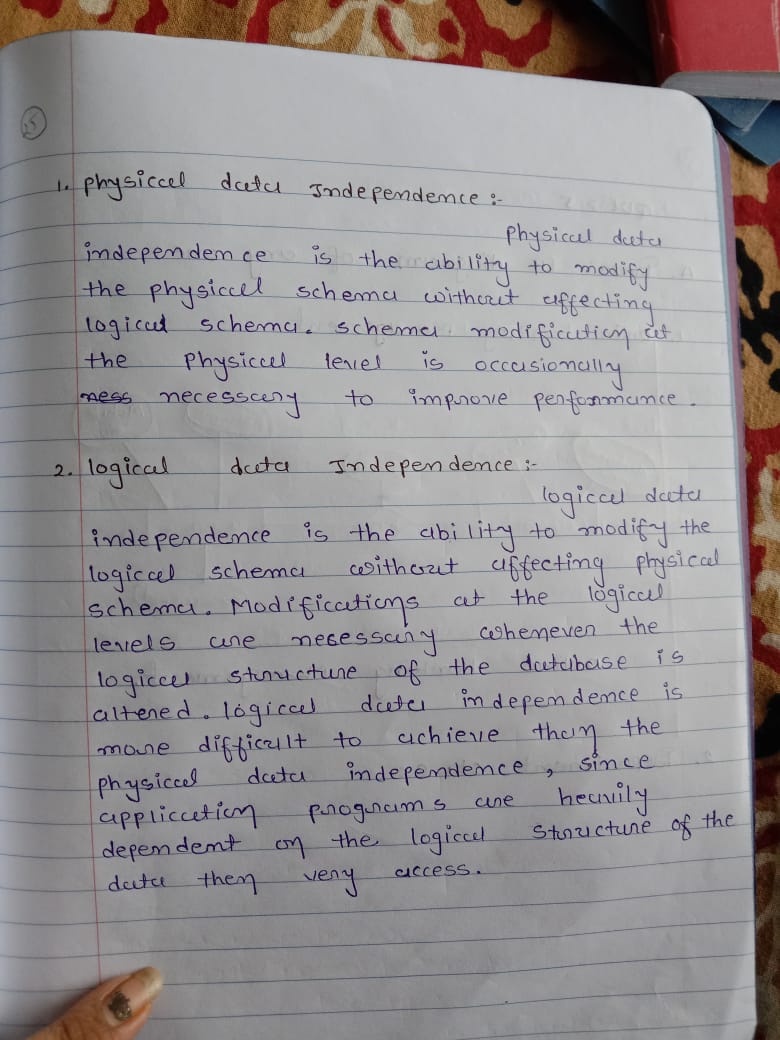 25
1. physical data Independence :-
physical data
independence is the ability to modify
the physical schema without affecting
logical schema. schema modification at
the physical level is occasionally
ness necessary to improve performance.
2. logical data Independence :-
logical data
independence is the ability to modify the
logical schema without affecting physical
schema. Modifications at the logical
levels are necessary whenever the
logical structure of the database is
altered. logical data independence is
more difficult to achieve than the
physical data independence, since
application programs are heavily
dependent on the logical structure of the
data then very access.